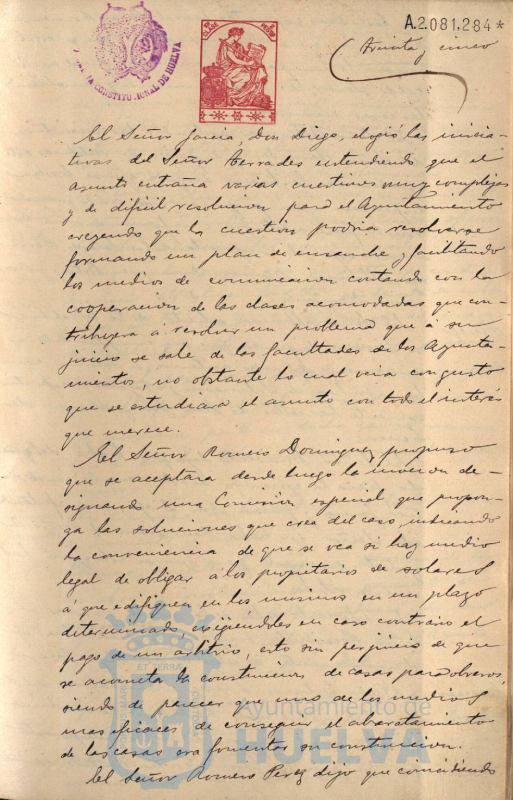 A.2.081.284*
treinta y cinco
CONSTITUCIONAL DE HUELVA
El Señor García, Don Diego, elogió las inicia-
tivas del Señor Terrades entendiendo que el
asunto entraña varias cuestiones muy complejas
y de dificil resolucion para el Ayuntamiento
creyendo que la cuestion podria resolverse
formando un plan de ensanche y facilitando
los medios de comunicacion contando con la
cooperacion de las clases acomodadas que con-
tribuyera á resolver un problema que á su
juicio se sale de las facultades de los Ayunta-
mientos, no obstante lo cual veia con gusto
que se estudiara el asunto con todo el interés
que merece.
El Señor Romero Dominguez propuso
que se aceptara desde luego la mocion de-
signando una Comisión especial que propon-
ga las soluciones que crea del caso, indicando
la conveniencia de que se vea si hay medio
legal de obligar á los propietarios de solares
á que edifiquen en los mismos en un plazo
determinado, exigiendoles en caso contrario el
pago de un arbitrio, esto sin perjuicio de que
se acometa la construccion de casas para obreros,
siendo de parecer que uno de los medios
mas eficaces de conseguir el abaratamiento
de las casas era fomentar su construccion.
El Señor Romero Perez dijo que coincidiendo
Ayuntamiento de
HUELVA